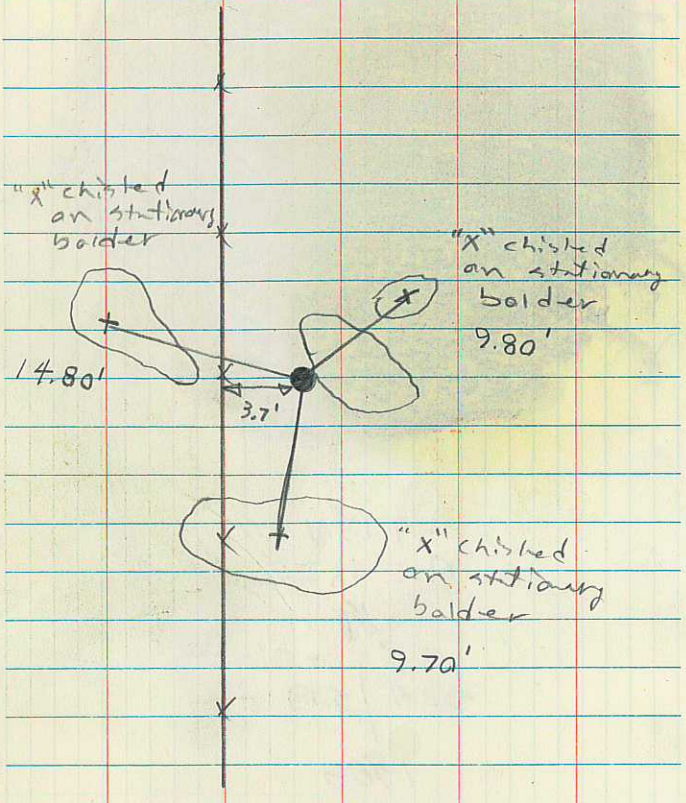 "X" chisled
on stationary
bolder
14.80'
"X" chisled
on stationary
bolder
9.80'
3.7'
"X" chisled
on stationary
bolder
9.70'